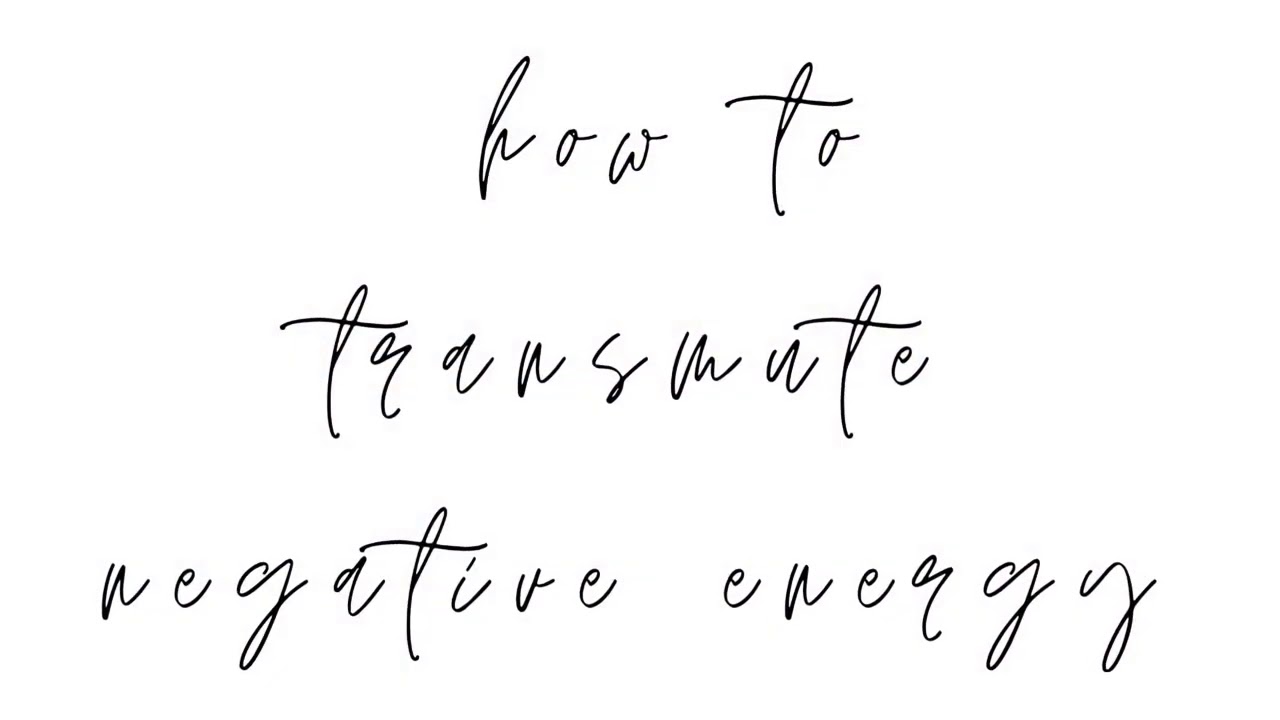 how to
transmute
negative energy